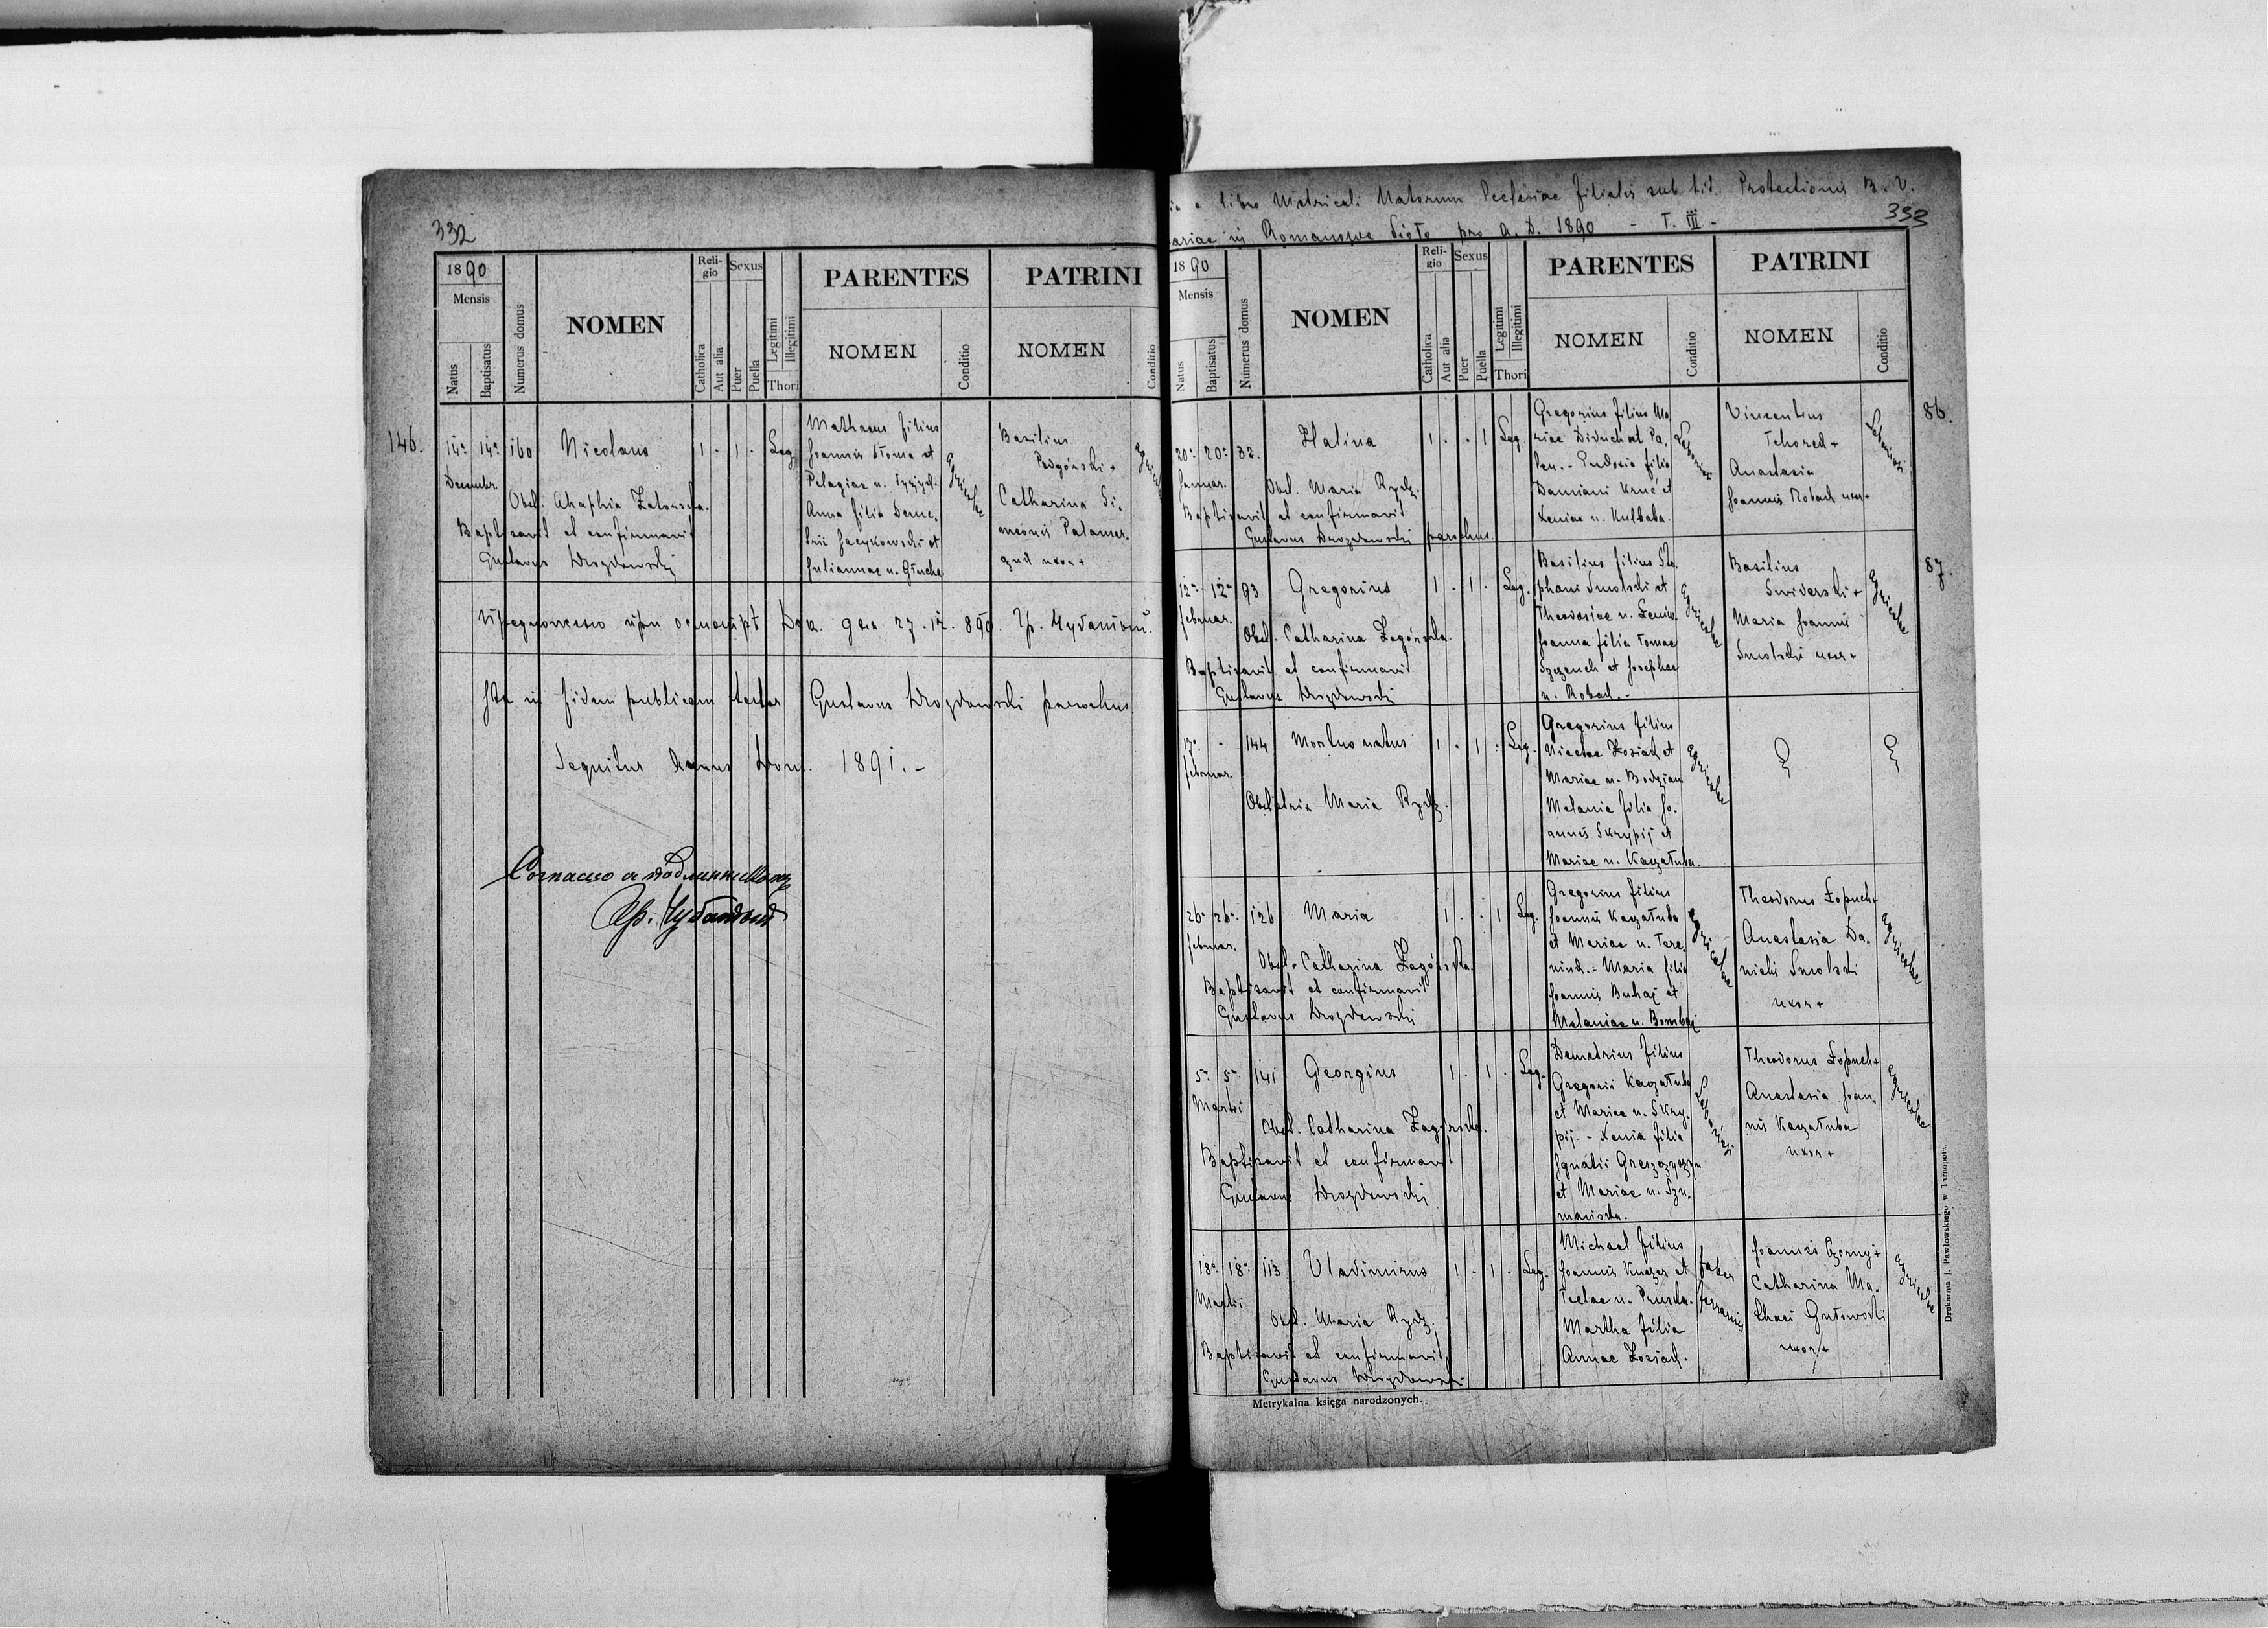 332
1890
Mensis
Natus
Baptisatus
Numerus domus
NOMEN
Religio
Catholica
Aut alia
Sexus
Puer
Puella
Legitimi
Illegitimi
Thori
PARENTES
NOMEN
Conditio
PATRINI
NOMEN
Conditio
146.
14a 14a 160 Nicolaus 1 . 1 . Leg.
Decembr.
Obst. Ahaphia
Baptisavit et confirmavit
Gustavus Drozdowski
Mathaeus filius
Joannis Słoma et
Pelagiae n.
Anna filia Deme-
trii Jacykowski et
Juliannae n. Głucha
agricolae
Basilius
Podgórski +
Catharina Si-
meonis Palamar-
uxor +
Предложено при
дня 27.12.890. Гр.
Ita in fidem publicam testor Gustavus Drozdowski parochus
Sequitur Annus Dom. 1891.-
Согласно с подлинникомъ
Гр.
a libro Metricali Natorum Ecclesiae filialis sub tit. Protectionis B. V.
Mariae in Romanowe Sioło pro A. D. 1890 - T. III -
333
1890
Mensis
Natus
Baptisatus
Numerus domus
NOMEN
Religio
Catholica
Aut alia
Sexus
Puer
Puella
Legitimi
Illegitimi
Thori
PARENTES
NOMEN
Conditio
PATRINI
NOMEN
Conditio
86.
20a 20a 32. Halina 1 . . 1 Leg.
Januar.
Obst. Maria Rydz.
Baptisavit et confirmavit
Gustavus Drozdowski parochus.
Gregorius filius Ma-
riae Diduch et Pa-
Eudoxia filia
Damiani Kruć et
Xeniae n. Kulbaba.
Vincentius
Tchorek +
Anastasia
Joannis Robach uxor +
87.
12a 12a 93 Gregorius 1 . 1 . Leg.
februar.
Obst. Catharina Zagórska.
Baptisavit et confirmavit
Gustavus Drozdowski
Basilius filius Ste-
phani Smolski et
Theodosiae n.
Joanna filia Tomae
et Josephae
n. Robach.-
agricolae
Basilius
Swiderski +
Maria Joannis
Smolski uxor +
agricolae
17a - 144 Mortuo natus 1 . 1 . Leg.
februar.
Obstetrix Maria Rydz.
Gregorius filius
Nicetae Koziak et
Mariae n. Bodzian
Melania filia Jo-
annis Skrypij et
Mariae n. Kaczałuba.
agricolae
26a 26a 126 Maria 1 . . 1 Leg.
februar.
Obst. Catharina Zagórska.
Baptisavit et confirmavit
Gustavus Drozdowski
Gregorius filius
Joannis Kaczałuba
et Mariae n.
Maria filia
Joannis Buhaj et
Melaniae n. Bombaj
agricolae
Theodorus Łopuch +
Anastasia Da-
nielis Smolski
uxor +
agricolae
5a 5a 141 Georgius 1 . 1 . Leg.
Martii
Obst. Catharina Zagórska.
Baptisavit et confirmavit
Gustavus Drozdowski
Demetrius filius
Gregorii Kaczałuba
et Mariae n. Skry-
pij. - Xenia filia
Ignatii
et Mariae n. Szu-
mańska.
Theodorus Łopuch +
Anastasia Joan-
nis Kaczałuba
uxor +
agricolae
18a 18a 113 Vladimirus 1 . 1 . Leg.
Martii
Obst. Maria Rydz.
Baptisavit et confirmavit
Gustavus Drozdowski
Michael filius
Joannis et
Teclae n. Pruska.
Martha filia
Annae Koziak.
faber
ferrarius
Joannes Czornyj +
Catharina Ma-
thaei Gutowski
uxor +
agricolae
Metrykalna księga narodzonych.
Drukarnia J. Pawłowskiego w Tarnopolu.